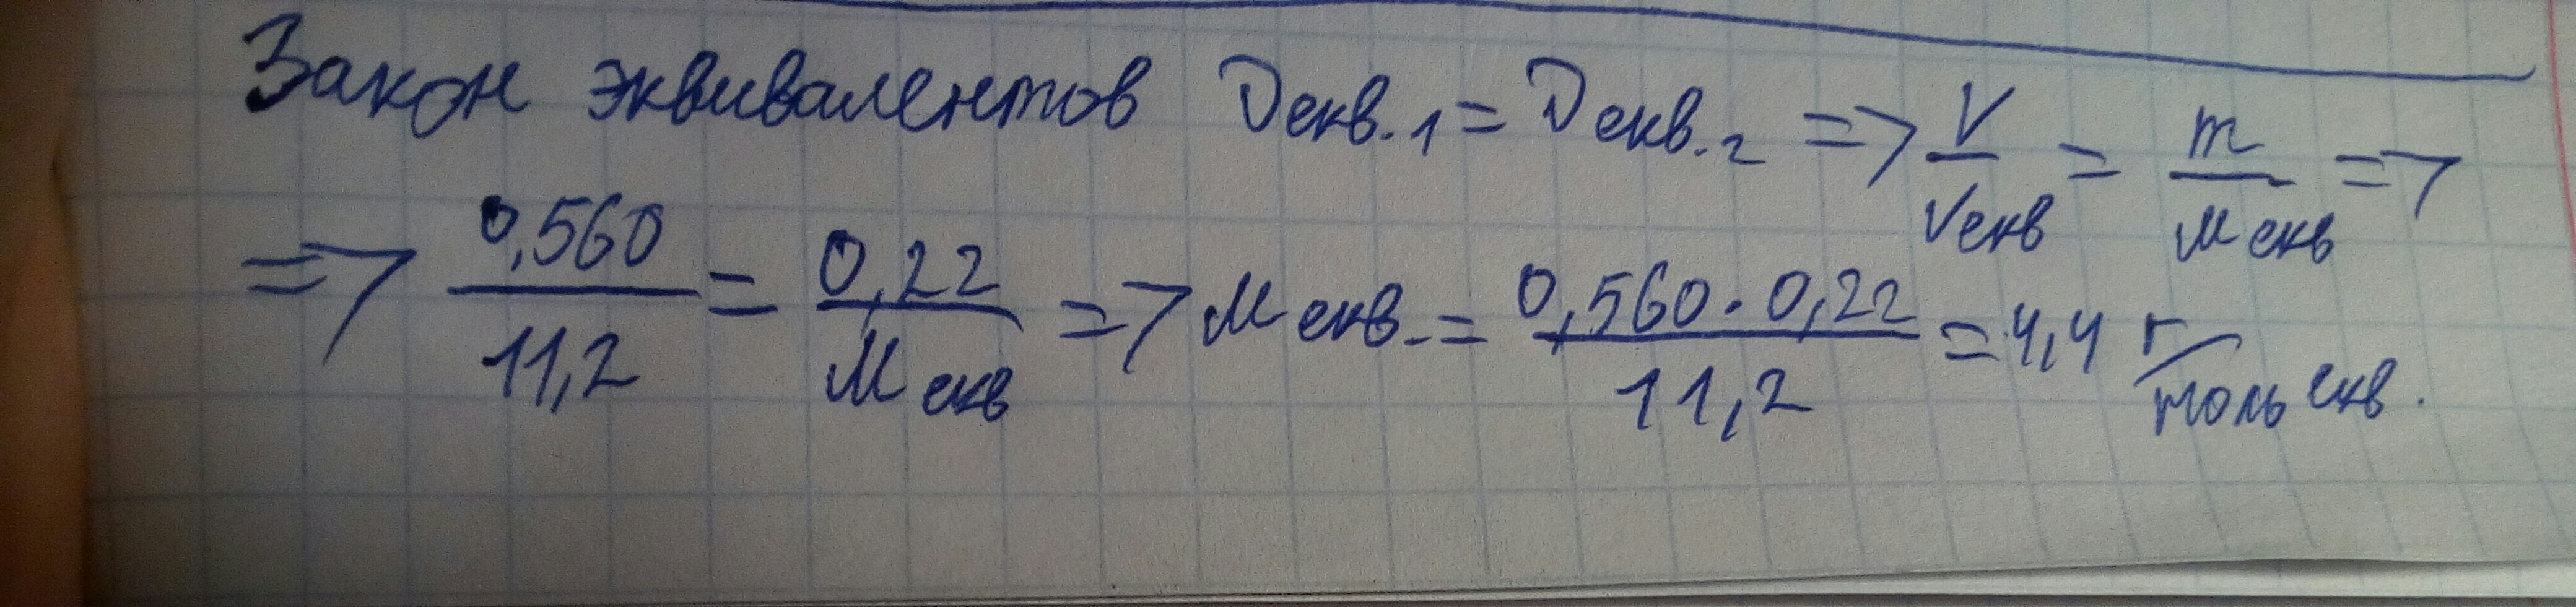 Закон эквивалентов Dекв.1 = Dекв.2 => V/Vекв = m/Mекв =>
=> 0,560/11,2 = 0,22/Mекв => Mекв. = 0,560·0,22/11,2 = 4,4 г/моль екв.